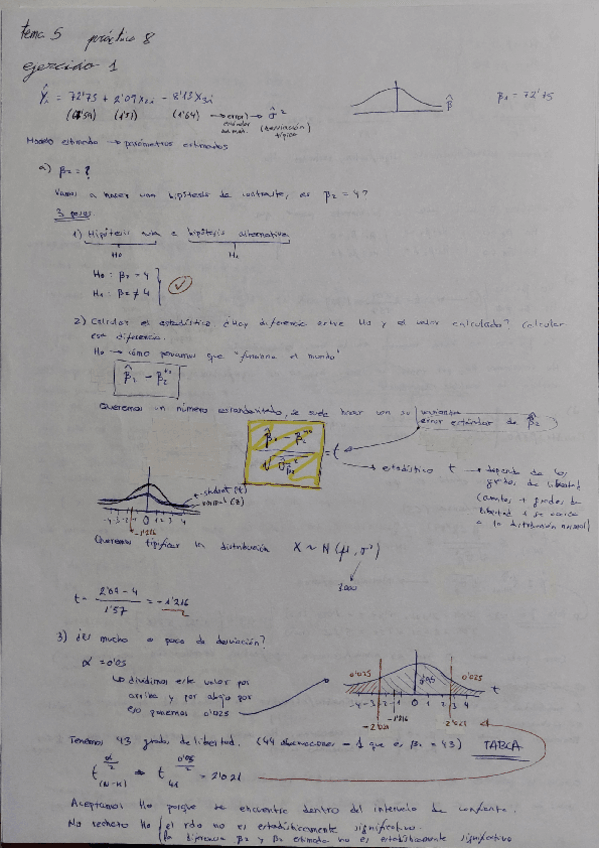 tema 5 práctica 8
ejercicio 1
Ŷi = 72'75 + 2'09 X2i - 8'13 X3i
(1'57) (1'64) → error estándar → σ̂² (desviación típica)
β̂
β1 = 72'75
Modelo estimado → parámetros estimados
a) β2 = ?
Vamos a hacer una hipótesis de contraste, es β2 = 4?
3 pasos
1) Hipótesis nula e hipótesis alternativa
H0 H1
H0 : β2 = 4
H1 : β2 ≠ 4
2) Calcular el estadístico ¿Hay diferencia entre H0 y el valor calculado? Calcular
esa diferencia.
H0 → cómo pensamos que "funciona el mundo"
β̂2 - β2^H0
Queremos un número estandarizado, se suele hacer con su varianza
error estándar de β̂2
= t
→ estadístico t → depende de los
grados de libertad
t-student (t)
-4 -3 -2 -1 0 1 2 3 4
-1'216
a la distribución normal)
Queremos tipificar la distribución X ~ N (μ, σ²)
t = 2'09 - 4 / 1'57 = -1'216
3) ¿Es mucho o poco de desviación?
α = 0'05
Lo dividimos este valor por
arriba y por abajo por
eso ponemos 0'025
0'025 0'95 0'025
-4 -3 -2 -1 0 1 2 3 4 t
-1'216
-2'021 2'021
Tenemos 43 grados de libertad. (44 observaciones - 1 que es β2 = 43) TABLA
t α/2 (N-K) → t 0'05/2 41 = 2'021
Aceptamos H0 porque se encuentra dentro del intervalo de confianza.
No rechazo H0 el rdo no es estadísticamente significativo.
la diferencia β2 y β2 estimada no es estadísticamente significativo